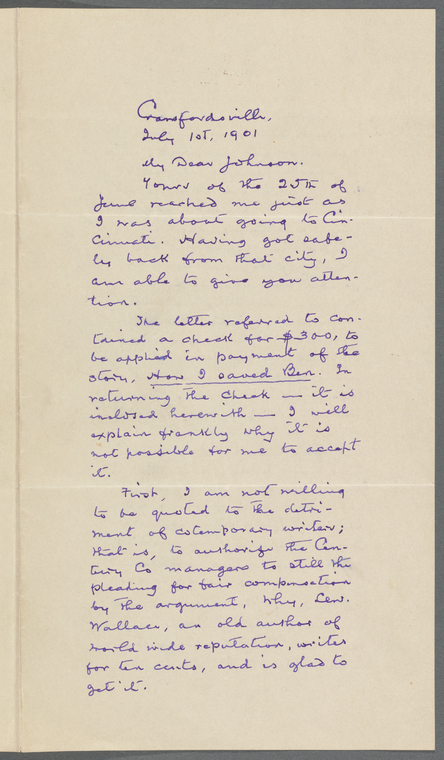 Crawfordsville,
July 1st, 1901
My Dear Johnson.
Yours of the 25th of
June reached me just as
I was about going to Cin-
cinnati. Having got safe-
ly back from that city, I
am able to give you atten-
tion.
The letter referred to con-
tained a check for $300, to
be applied in payment of the
story, How I saved Ben. In
returning the check — it is
inclosed herewith — I will
explain frankly why it is
not possible for me to accept
it.
First, I am not willing
to be quoted to the detri-
ment of cotemporary writers;
that is, to authorize the Cen-
tury Co managers to still the
pleading for fair compensation
by the argument, Why, Lew.
Wallace, an old author of
world wide reputation, writes
for ten cents, and is glad to
get it.